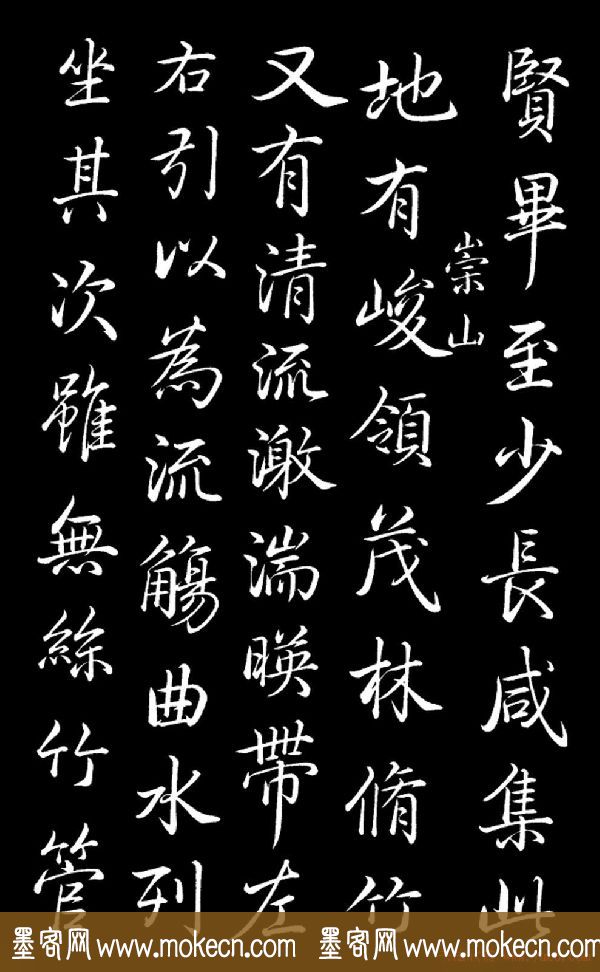 賢畢至少長咸集此
地有峻領茂林脩竹
崇山
又有清流激湍暎帶左
右引以為流觴曲水列
坐其次雖無絲竹管
墨客网 www.mokecn.com 墨客网 www.mokecn.com